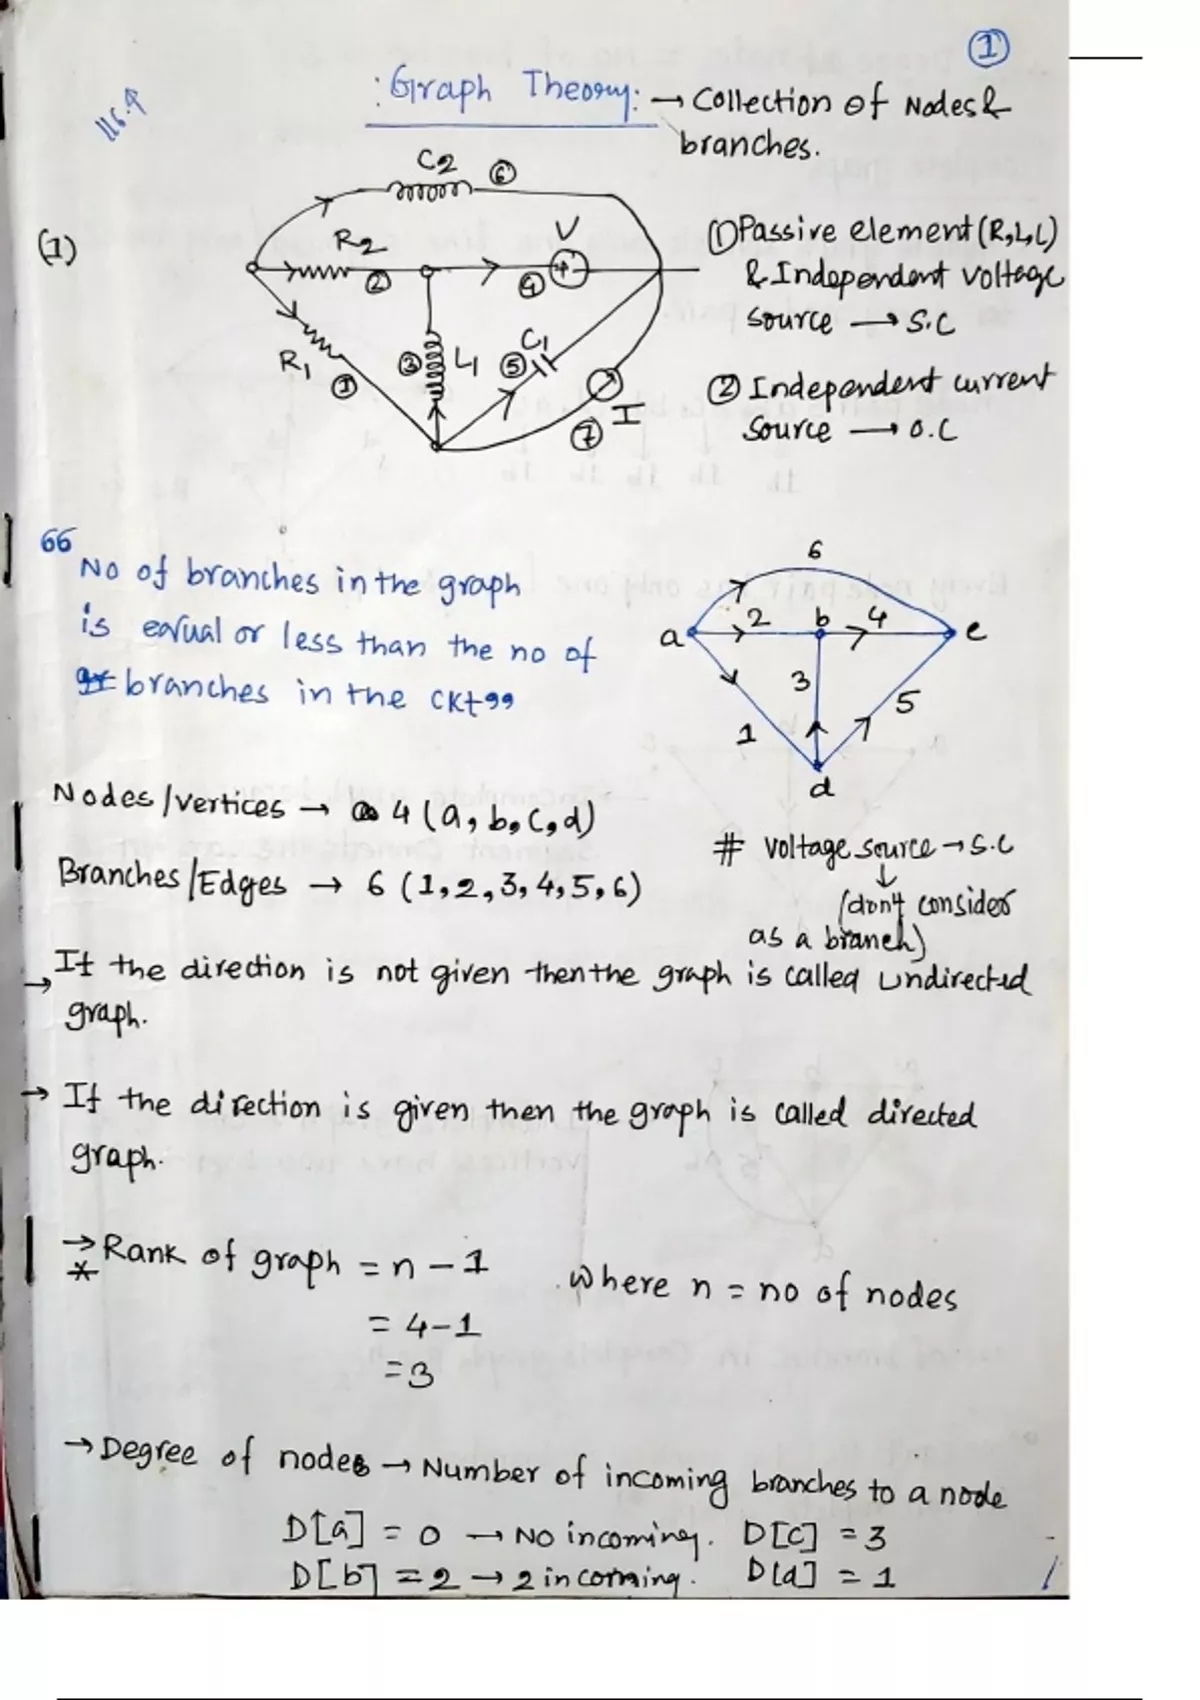 ①
: Graph Theory: → Collection of Nodes &
branches.
(1)
C2 ⑥
R2 ② V ④
R1 ① ③ L1 ⑤ C1
I ⑦
① Passive element (R,L,L)
& Independent voltage
source → S.C
② Independent current
source → O.C
66 No of branches in the graph
is equal or less than the no of
branches in the ckt 99
6
a 2 b 4 c
3 5
1
d
Nodes/vertices → 4 (a, b, c, d)
Branches/Edges → 6 (1,2,3,4,5,6)
# Voltage source → S.C
↓
(don't consider
as a branch)
→ If the direction is not given then the graph is called undirected
graph.
→ If the direction is given then the graph is called directed
graph.
→ * Rank of graph = n - 1 where n = no of nodes
= 4-1
= 3
→ Degree of nodes → Number of incoming branches to a node
D[a] = 0 → No incoming. D[c] = 3
D[b] = 2 → 2 incoming. D[d] = 1